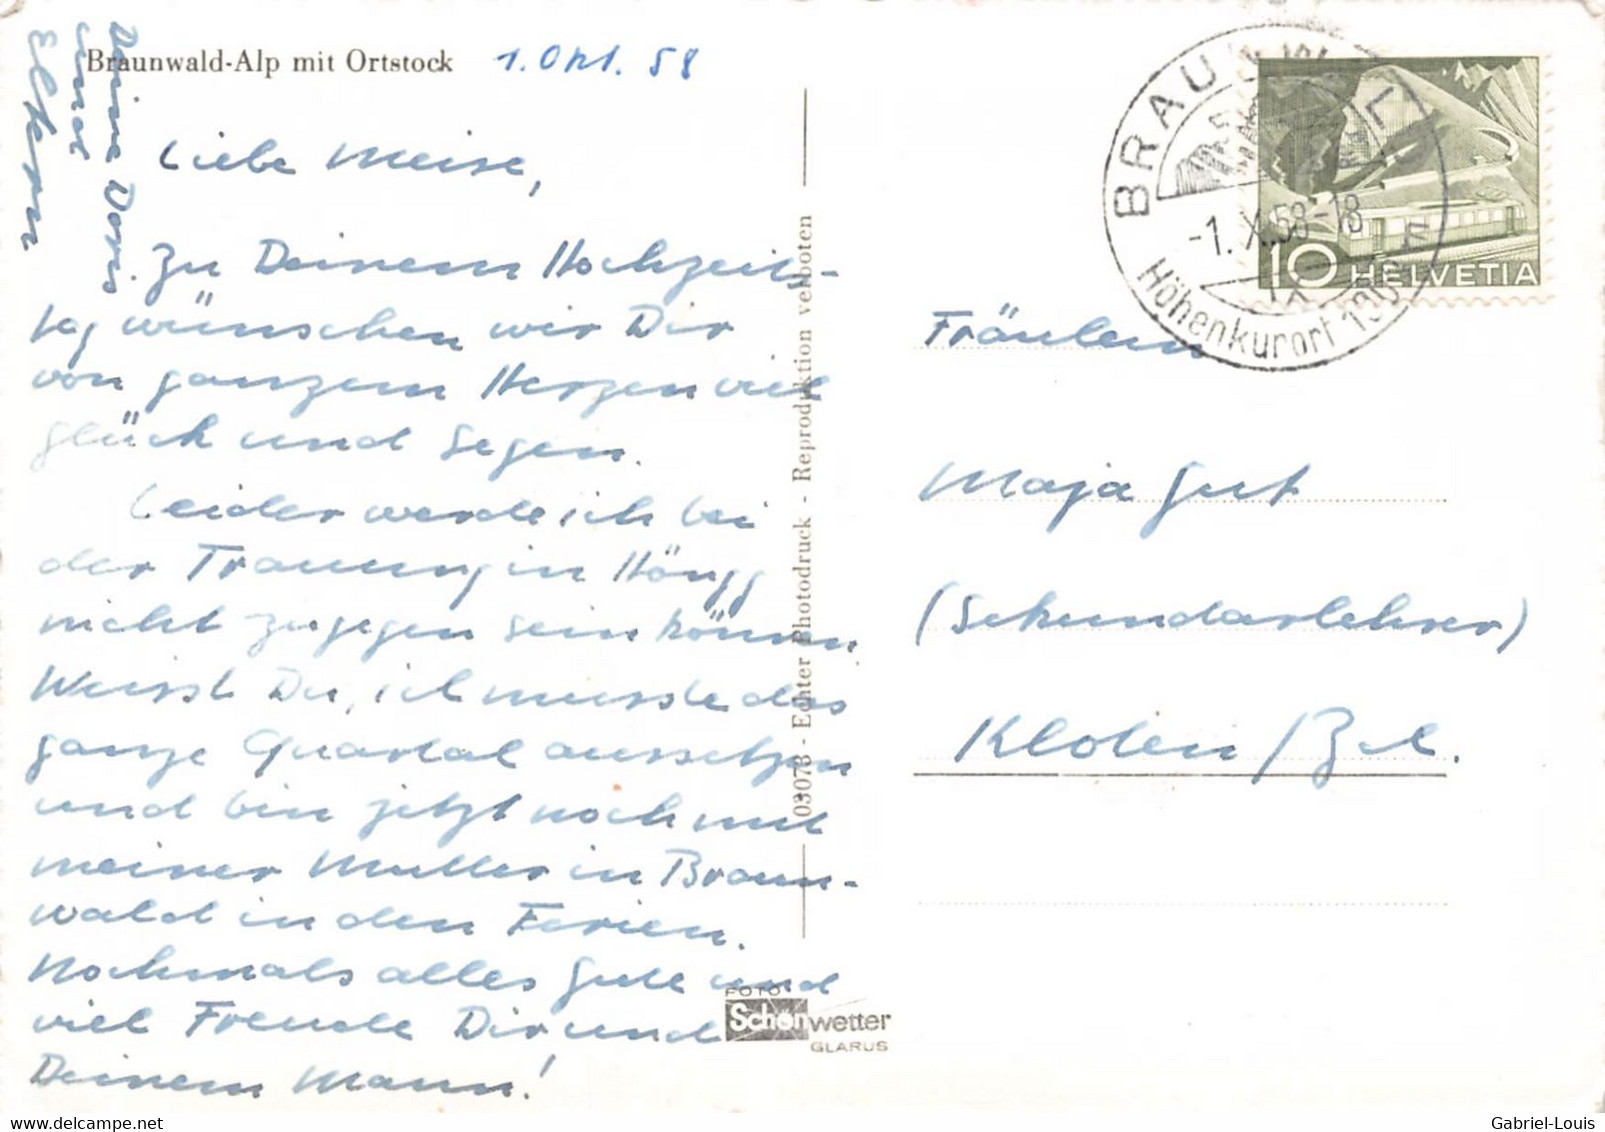 Braunwald-Alp mit Ortstock
1. Okt. 58
Liebe Meise,
Zu Deinem Hochzeits-
tag wünschen wir Dir
von ganzem Herzen viel
Glück und Segen.
Leider werde ich bei
der Trauung in Höngg
nicht zugegen sein können.
Weisst Du, ich musste das
ganze Quartal aussetzen
und bin jetzt noch mit
meiner Mutter in Braun-
wald in den Ferien.
Nochmals alles Gute und
viel Freude Dir und
Deinem Mann!
Deine Doris
und
Eltern
03078 - Echter Photodruck - Reproduktion verboten
FOTO
Schönwetter
GLARUS
BRAUNWALD
-1. X. 58-18
Höhenkurort
10 HELVETIA
Fräulein
Maja Gut
(Sekundarlehrer)
Kloten / Zch.
Gabriel-Louis